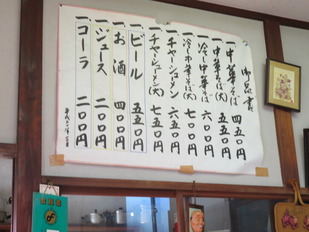 御品書
一 中華そば 四五〇円
一 中華そば(大) 五五〇円
一 冷し中華そば 六〇〇円
一 冷し中華そば(大) 七〇〇円
一 チャーシューメン 六五〇円
一 チャーシューメン(大) 七五〇円
一 ビール 五五〇円
一 お酒 四〇〇円
一 ジュース 二〇〇円
一 コーラ 二〇〇円